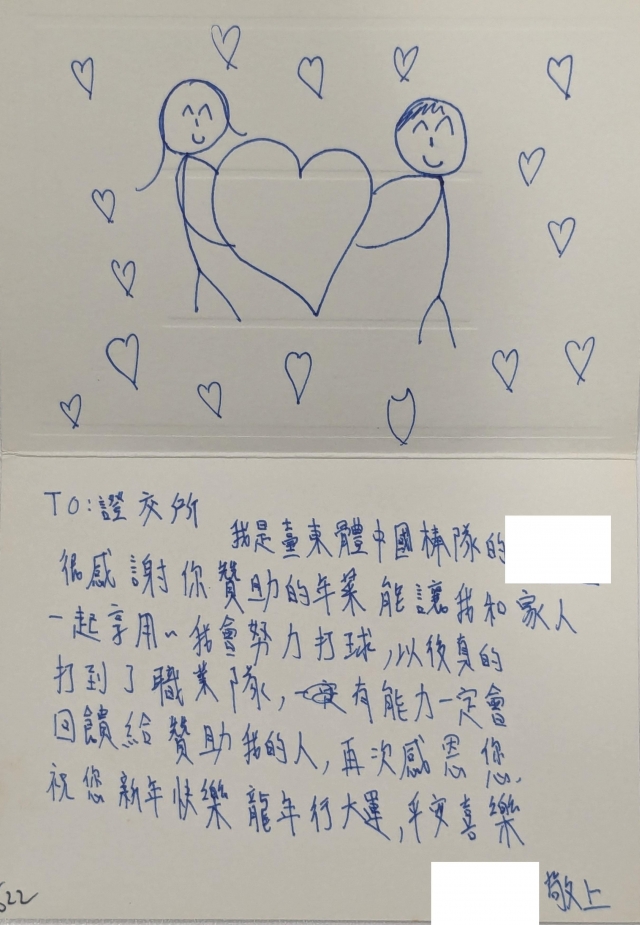 TO:證交所
我是臺東體中國棒隊的
很感謝你贊助的年菜能讓我和家人
一起享用~我會努力打球,以後真的
打到了職業隊,有能力一定會
回饋給贊助我的人,再次感恩您.
祝您新年快樂 龍年行大運,平安喜樂
敬上
522